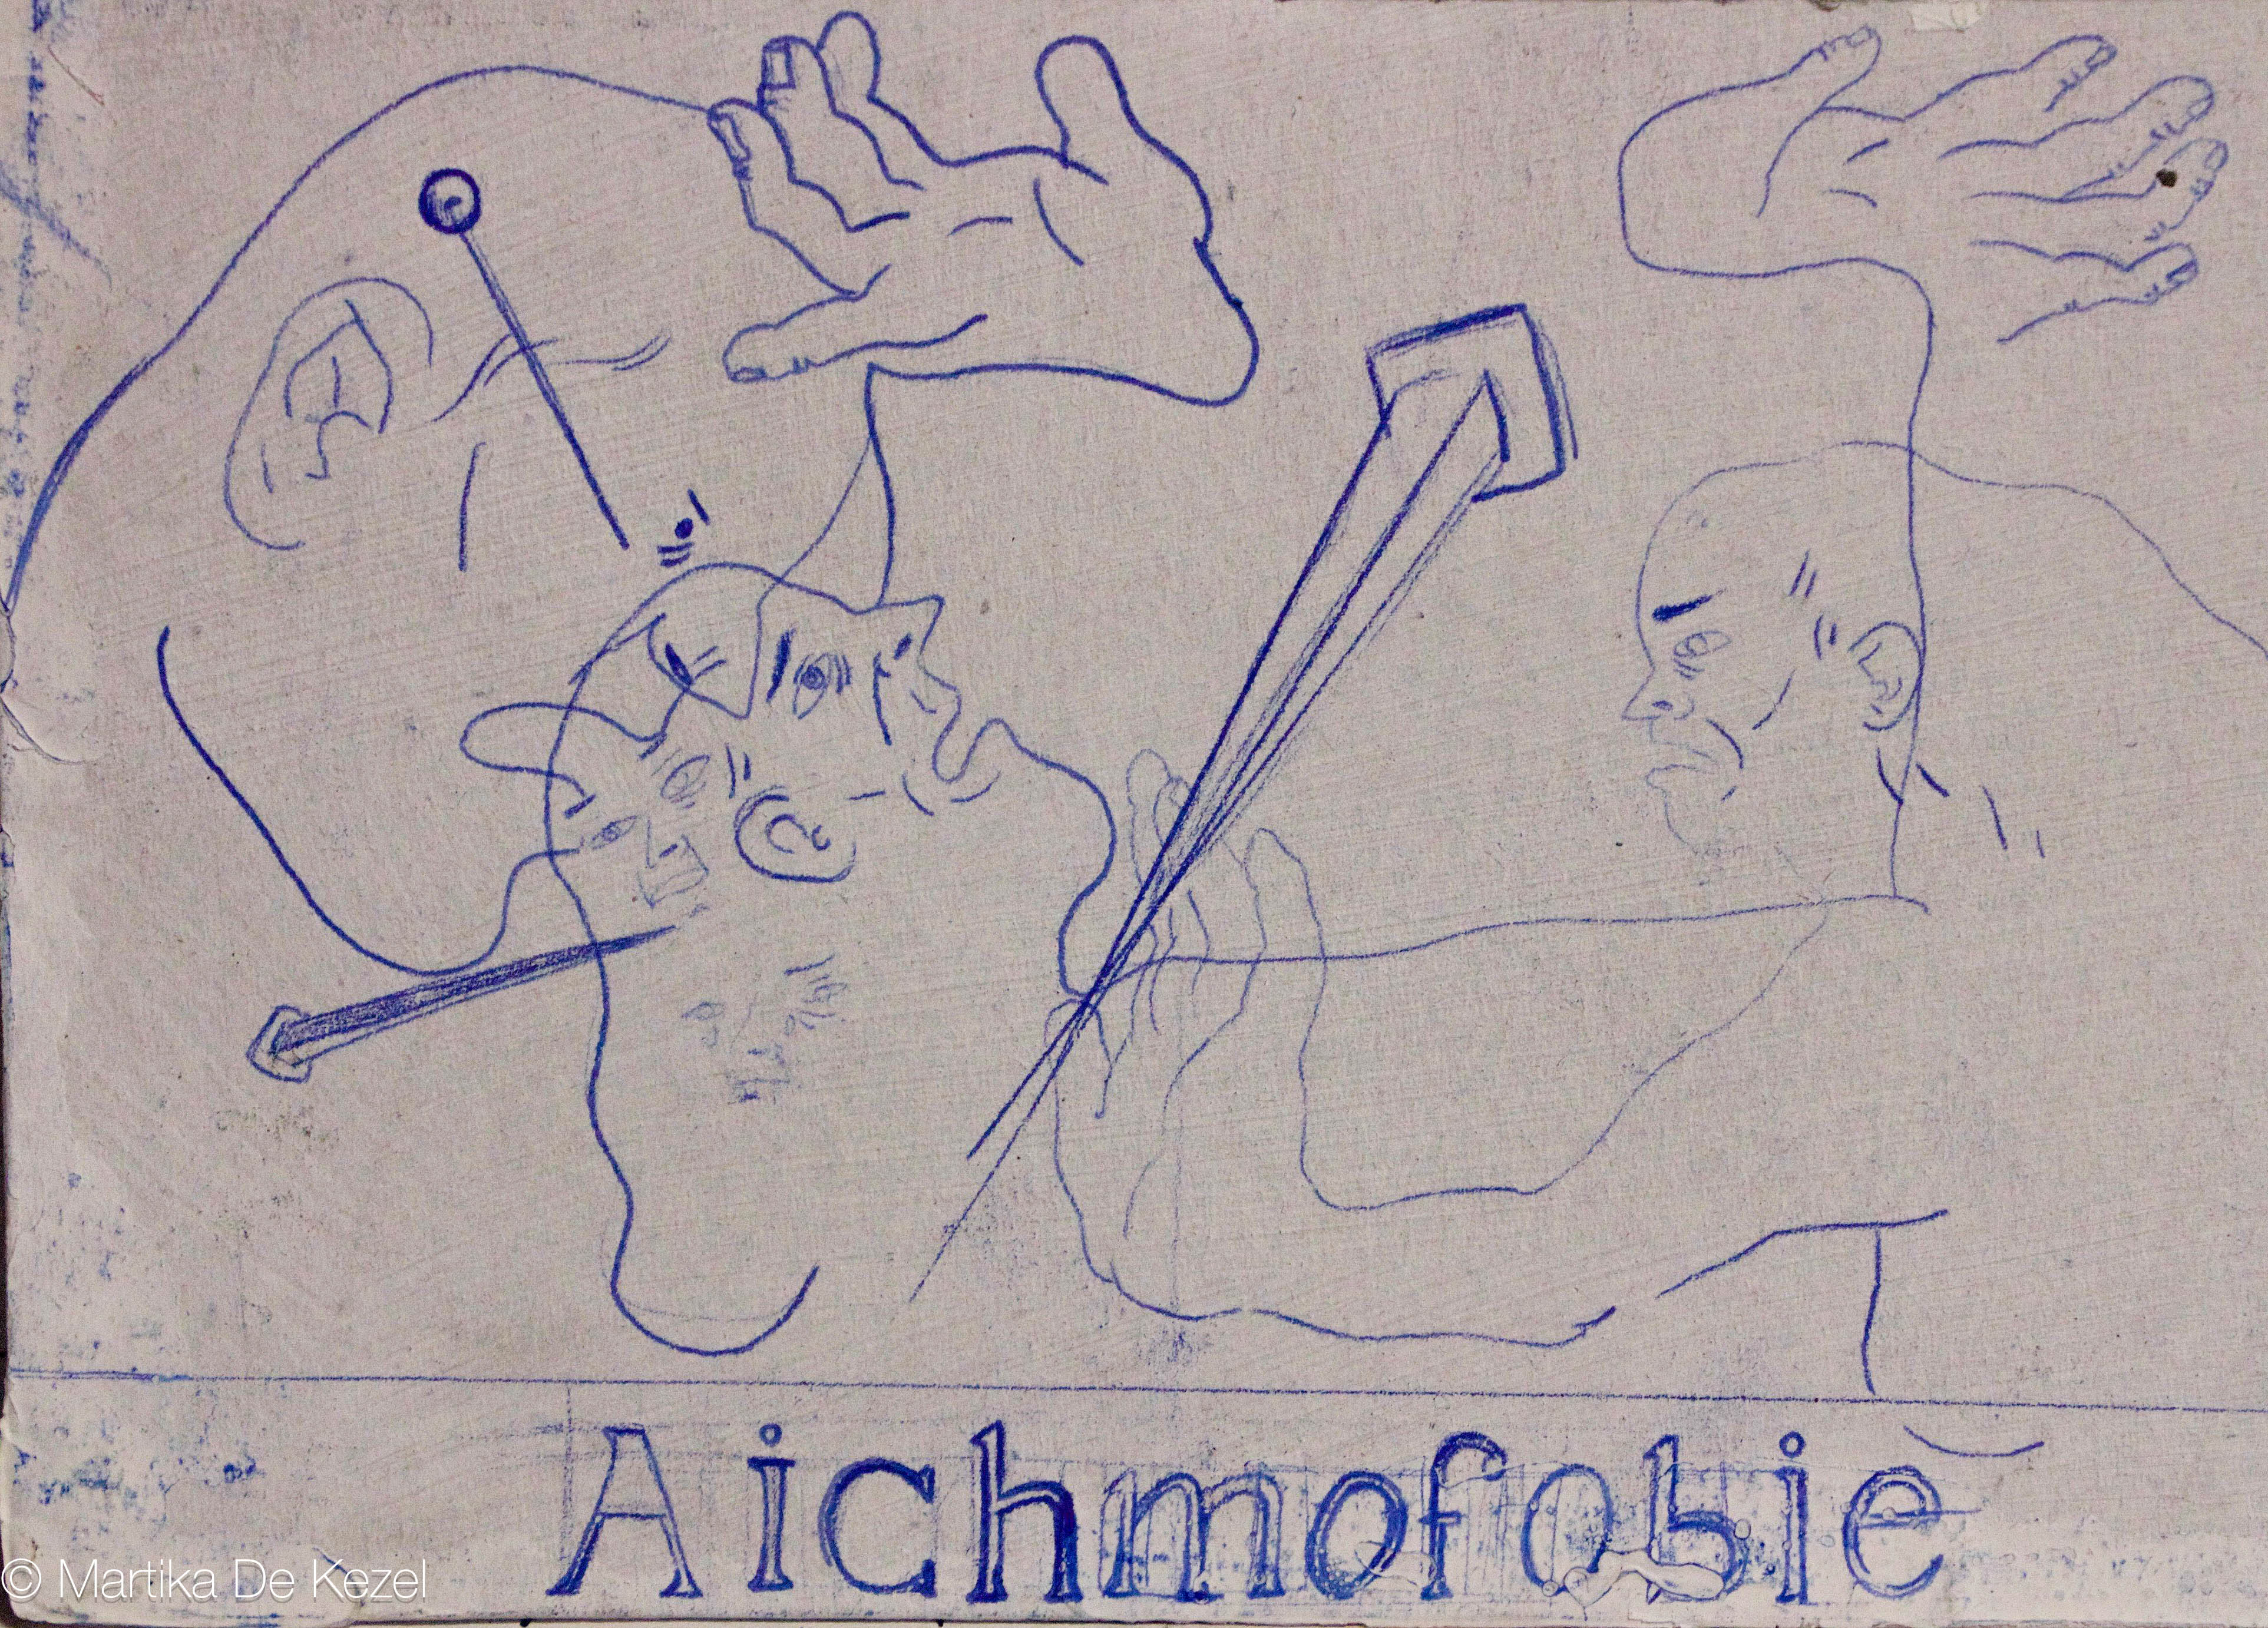 Aichmofobie
© Martika De Kezel